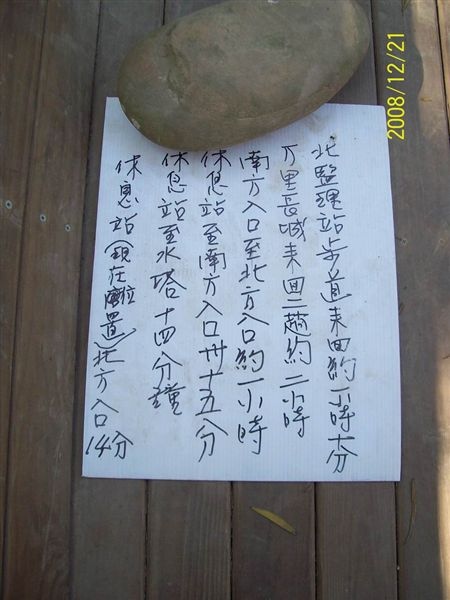 北監理站步道来回約一小時十分
万里長城来回二趟約二小時
南方入口至北方入口約一小時
休息站至南方入口卅十五分
休息站至水塔十四分鐘
休息站(現在位置)北方入口14分
2008/12/21